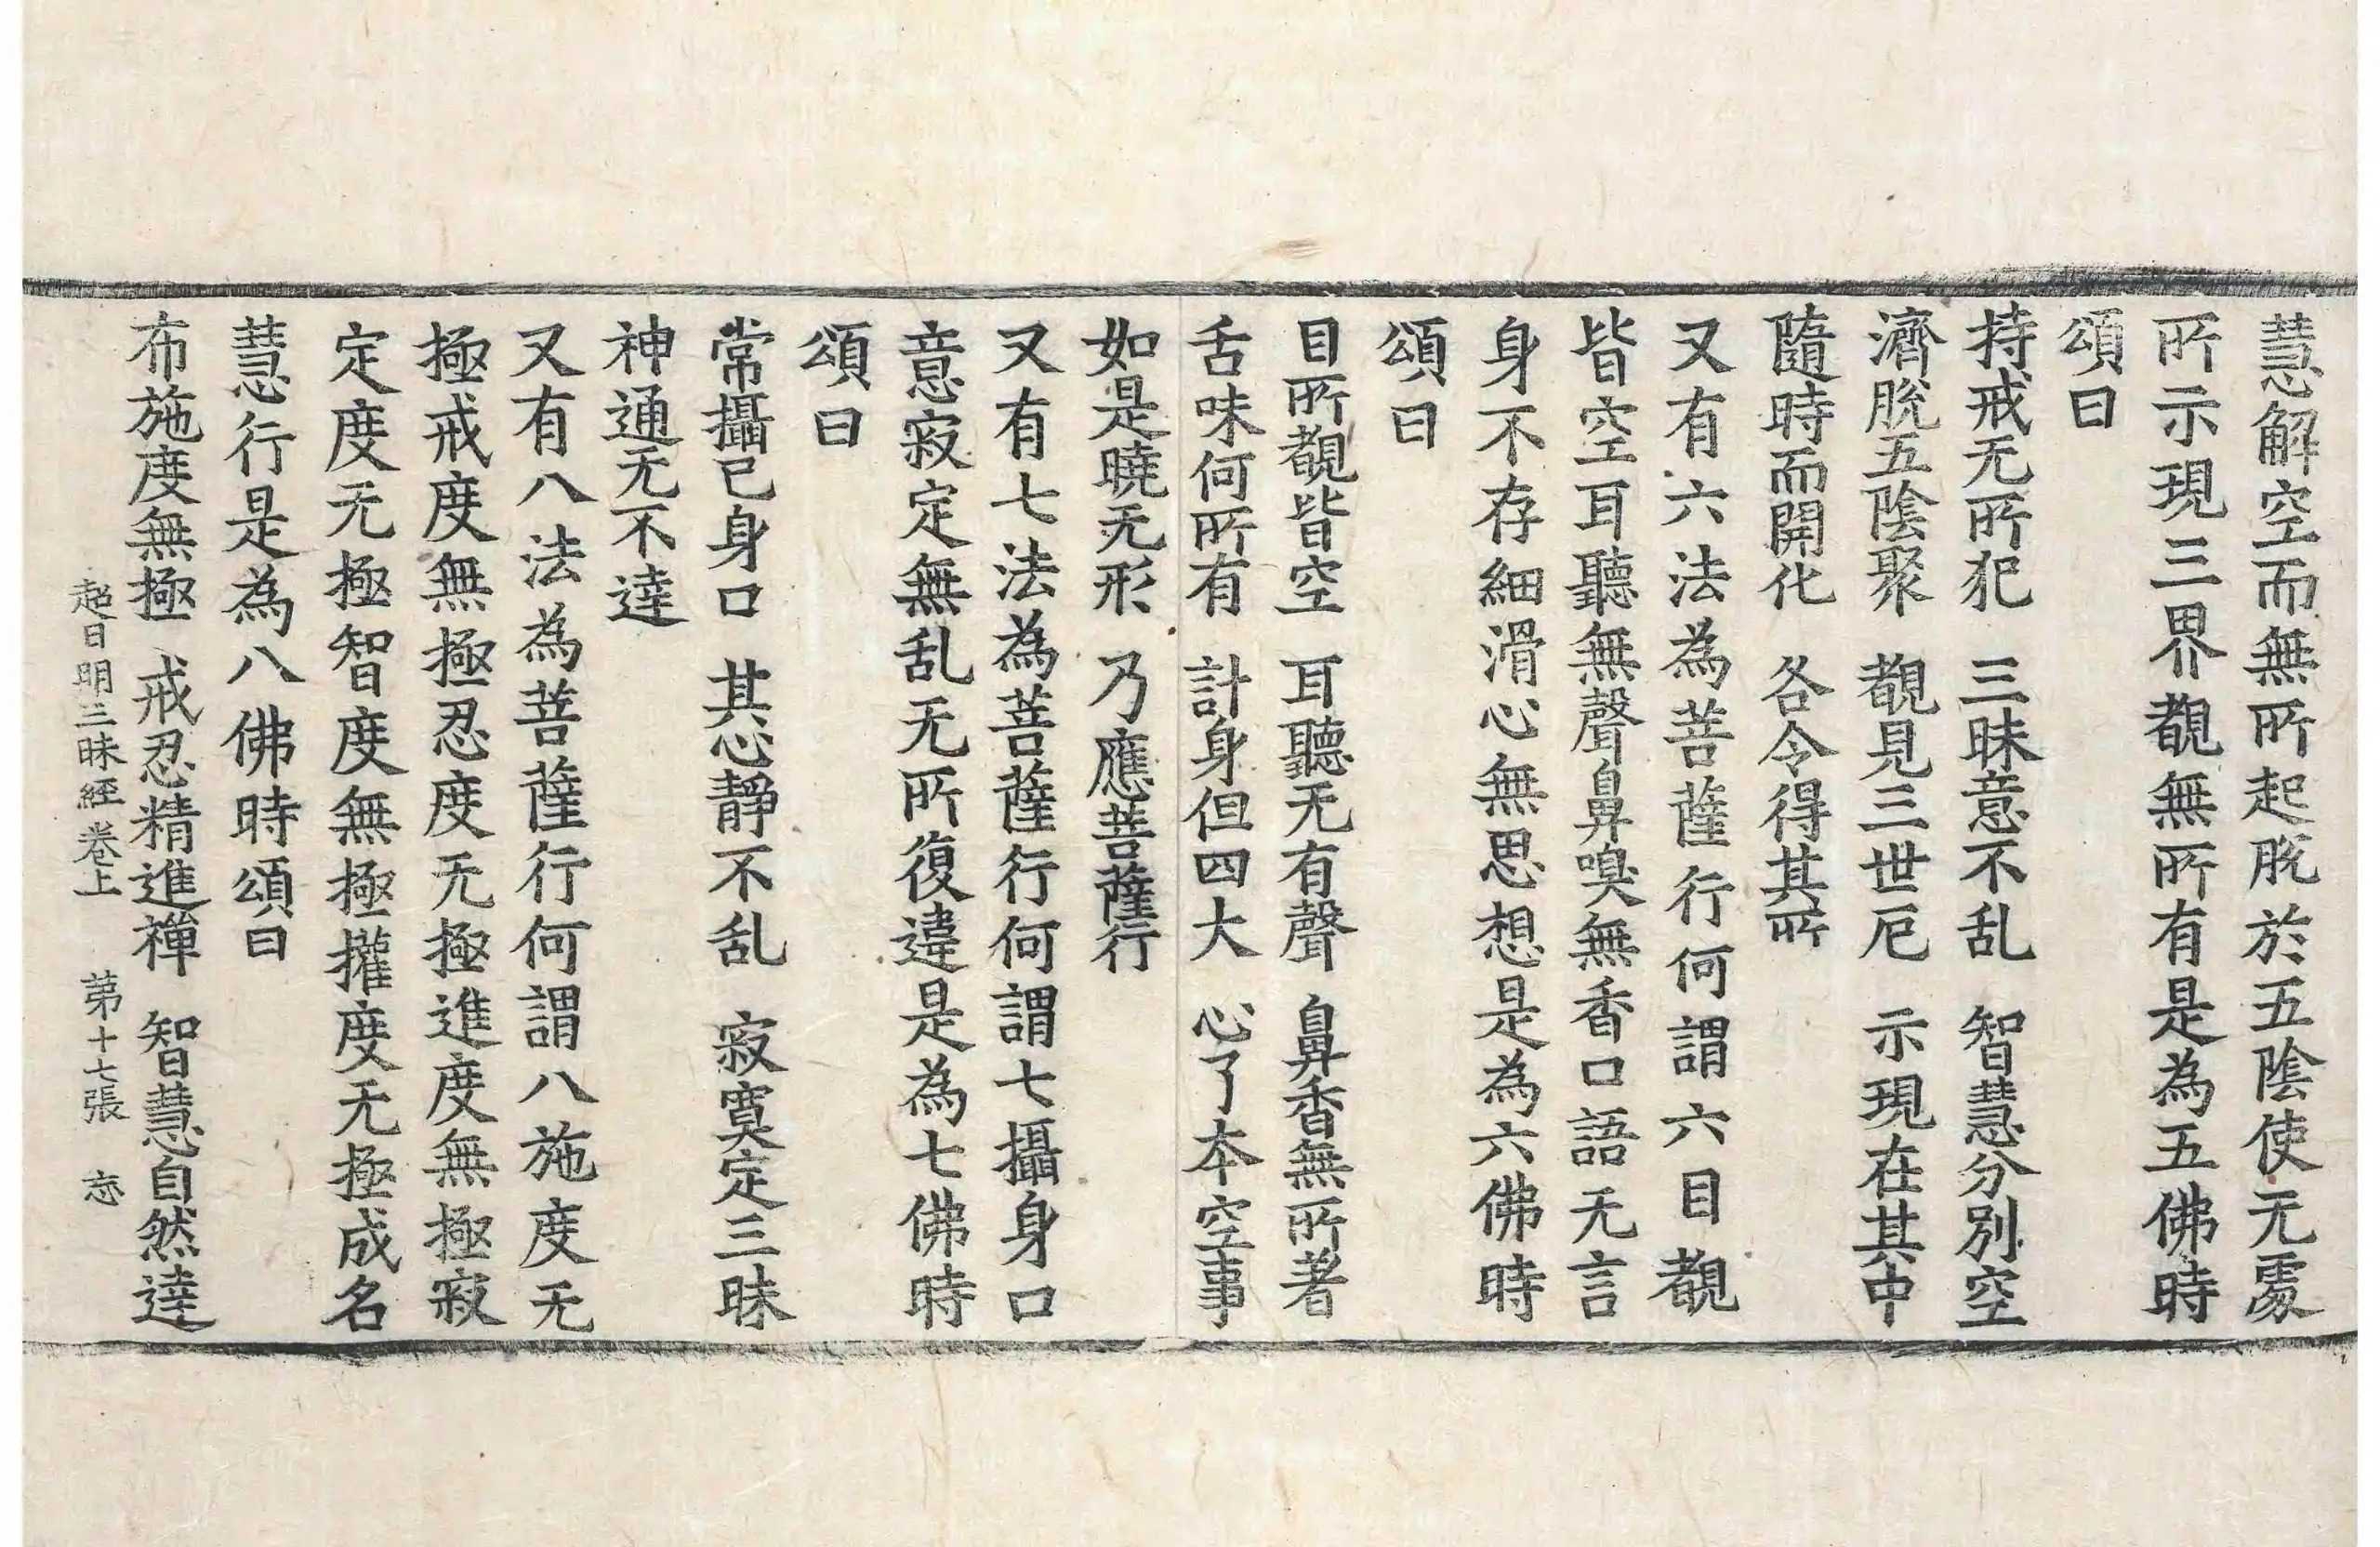 慧解空而無所起脫於五陰使无處
所示現三界覩無所有是為五佛時
頌曰
持戒无所犯 三昧意不乱 智慧分別空
濟脫五陰聚 覩見三世厄 示現在其中
隨時而開化 各令得其所
又有六法為菩薩行何謂六目覩
皆空耳聽無聲鼻嗅無香口語无言
身不存細滑心無思想是為六佛時
頌曰
目所覩皆空 耳聽无有聲 鼻香無所著
舌味何所有 計身但四大 心了本空事
如是曉无形 乃應菩薩行
又有七法為菩薩行何謂七攝身口
意寂定無乱无所復違是為七佛時
頌曰
常攝己身口 其心靜不乱 寂寞定三昧
神通无不達
又有八法為菩薩行何謂八施度无
極戒度無極忍度无極進度無極寂
定度无極智度無極攉度无極成名
慧行是為八佛時頌曰
布施度無極 戒忍精進禪 智慧自然達
超日明三昧經卷上 第十七張 忘